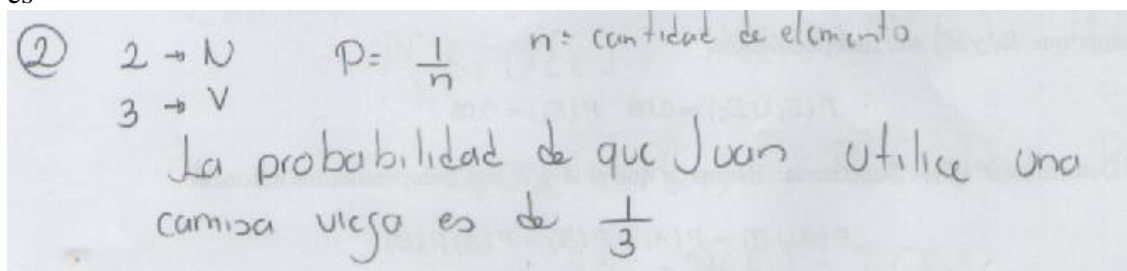 es
② 2 → N P = 1/n n = cantidad de elemento
3 → V
La probabilidad de que Juan utilice una
camisa vieja es de 1/3